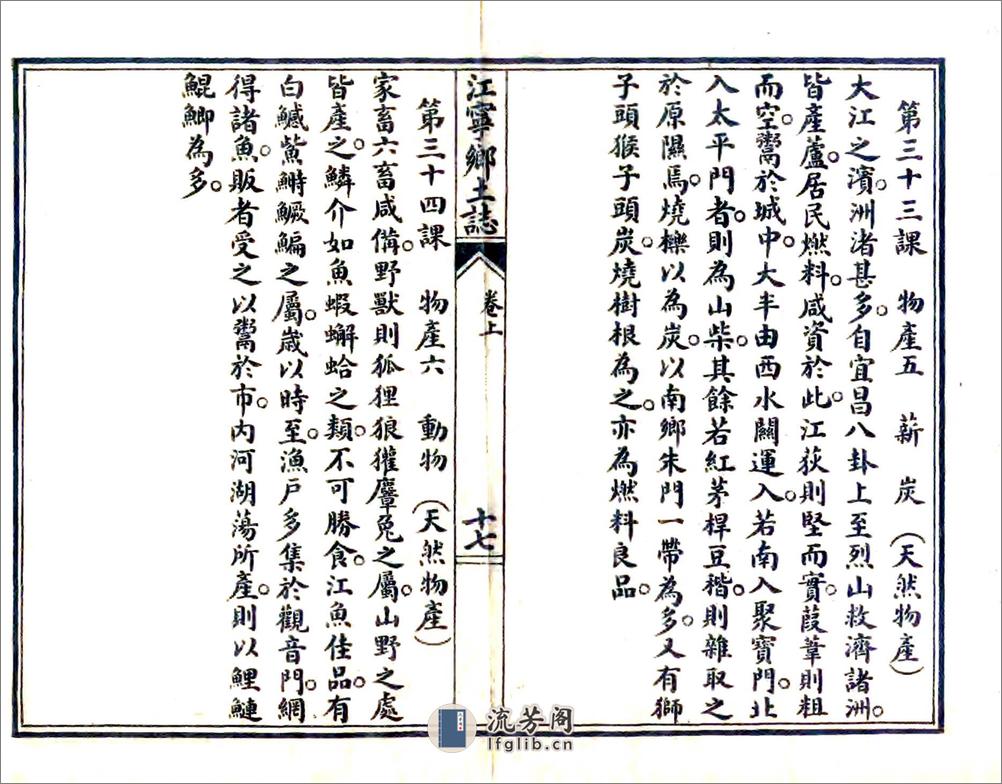 第三十三課　物產五　薪　炭（天然物產）
大江之濱。洲渚甚多。自宜昌八卦上至烈山救濟諸洲。
皆產蘆。居民燃料。咸資於此。江荻則堅而實。葭葦則粗
而空。鬻於城中。大半由西水關運入。若南入聚寶門。北
入太平門者。則為山柴。其餘若紅茅桿豆稭。則雜取之
於原隰焉。燒櫟以為炭。以南鄉朱門一帶為多。又有獅
子頭猴子頭炭。燒樹根為之。亦為燃料良品。
江寧鄉土誌
卷上
十七
第三十四課　物產六　動物（天然物產）
家畜六畜咸備。野獸則狐狸狼獾麞兔之屬。山野之處
皆產之。鱗介如魚蝦蠏蛤之類。不可勝食。江魚佳品。有
白鱤鮆鰣鱖鯿之屬。歲以時至。漁戶多集於觀音門。網
得諸魚。販者受之以鬻於市。內河湖蕩所產。則以鯉鰱
鯤鯽為多。
流芳阁
lfglib.cn